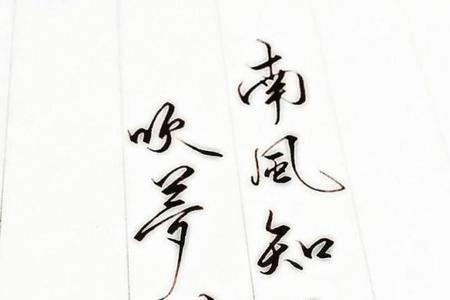 南風知
吹夢